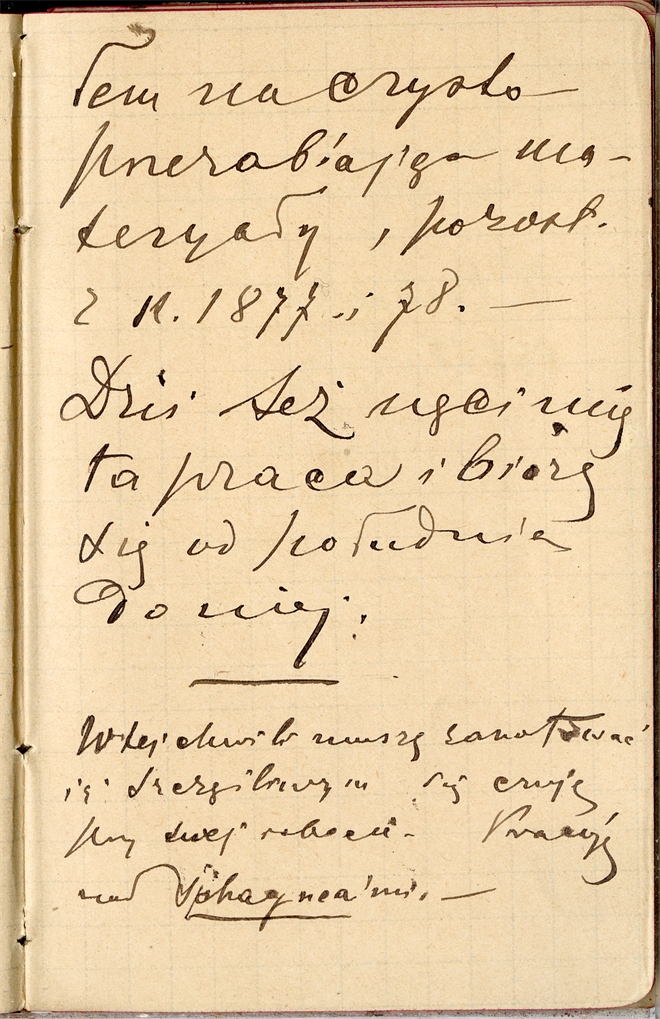 łem na czysto —
przerabiając ma-
teryały, pozost.
z r. 1877 i 78. —
Dziś też nęci mię
ta praca i biorę
się od południa
do niej.
W tej chwili muszę zanotować
iż szczęśliwym się czuję
przy tej robocie. Pracuję
nad Sphagnea'mi. —